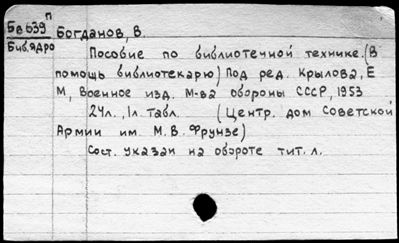 Бв 639 п Богданов, В.
Биб. ядро
Пособие по библиотечной технике. (В
помощь библиотекарю) Под ред. Крылова, Е
М, Военное изд. М-ва обороны СССР, 1953
24л., 1л. табл. (Центр. дом Советской
Армии им. М. В. Фрунзе)
Сост. указан на обороте тит. л.